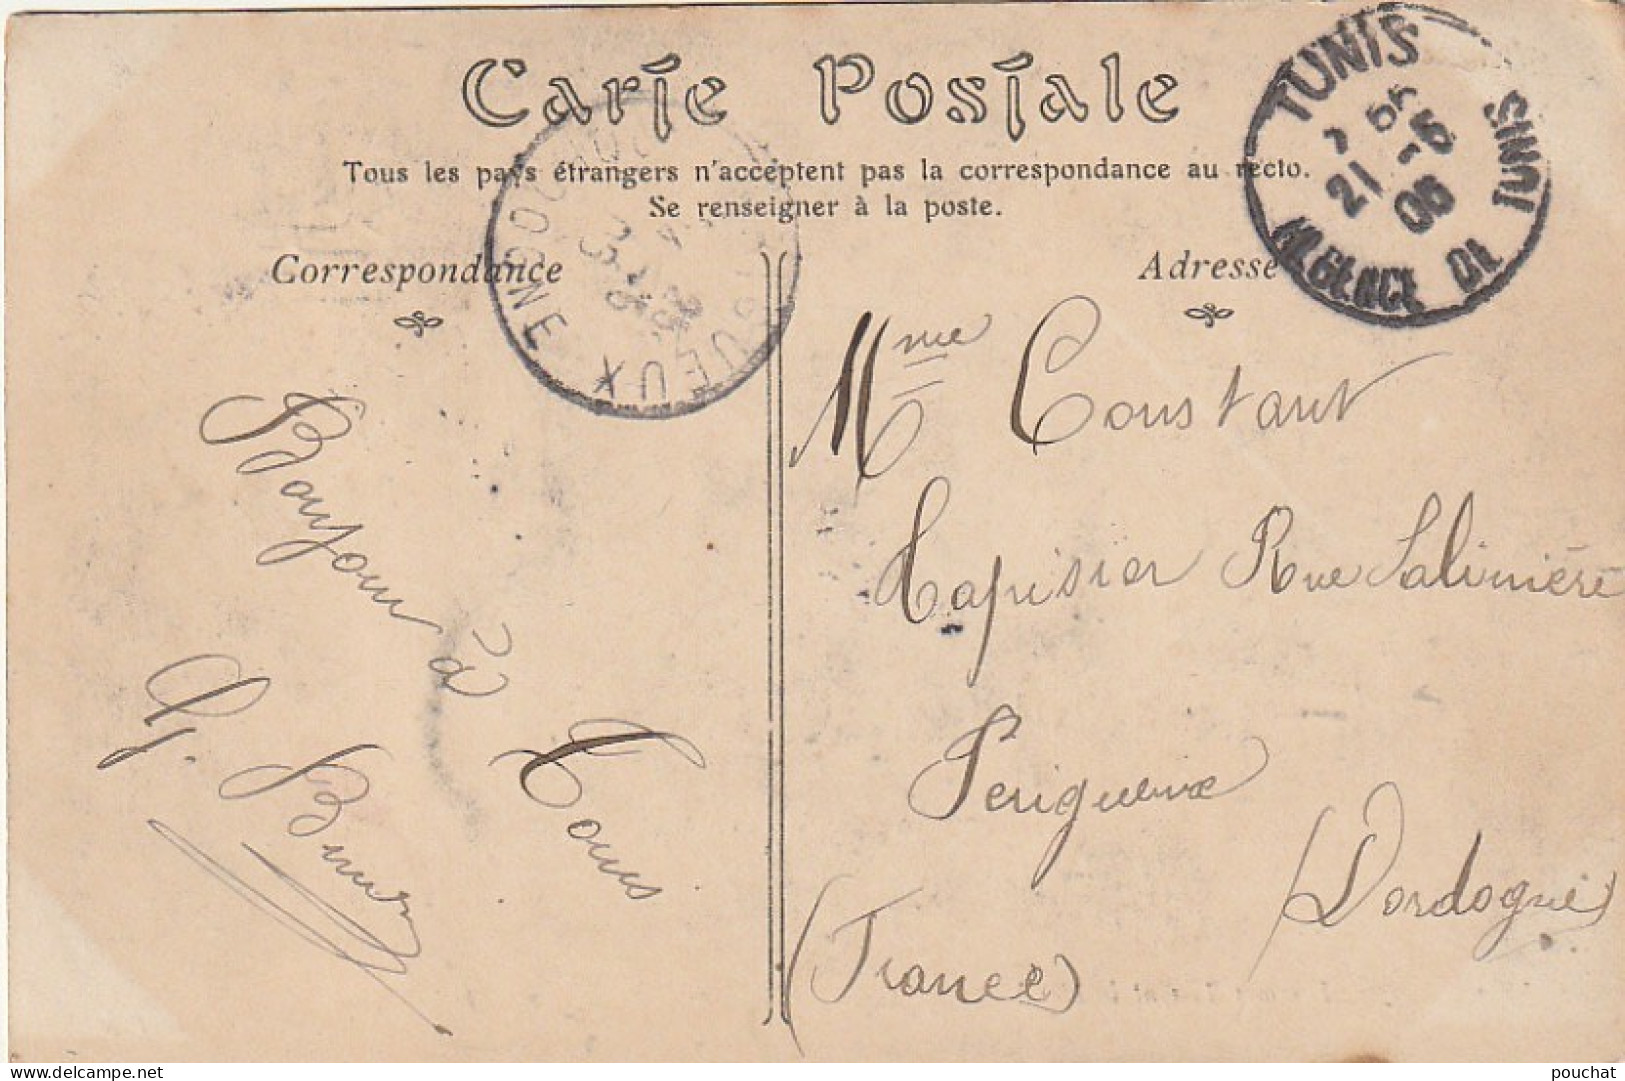 Carte Postale
Tous les pays étrangers n'acceptent pas la correspondance au recto.
Se renseigner à la poste.
Correspondance
Adresse
TUNIS
21 -5
06
TUNIS
Bonjour à
Tous
G.
Mme Constant
Tapisier Rue Salinière
Perigueux
(Dordogne)
(France)
delcampe.net
pouchat